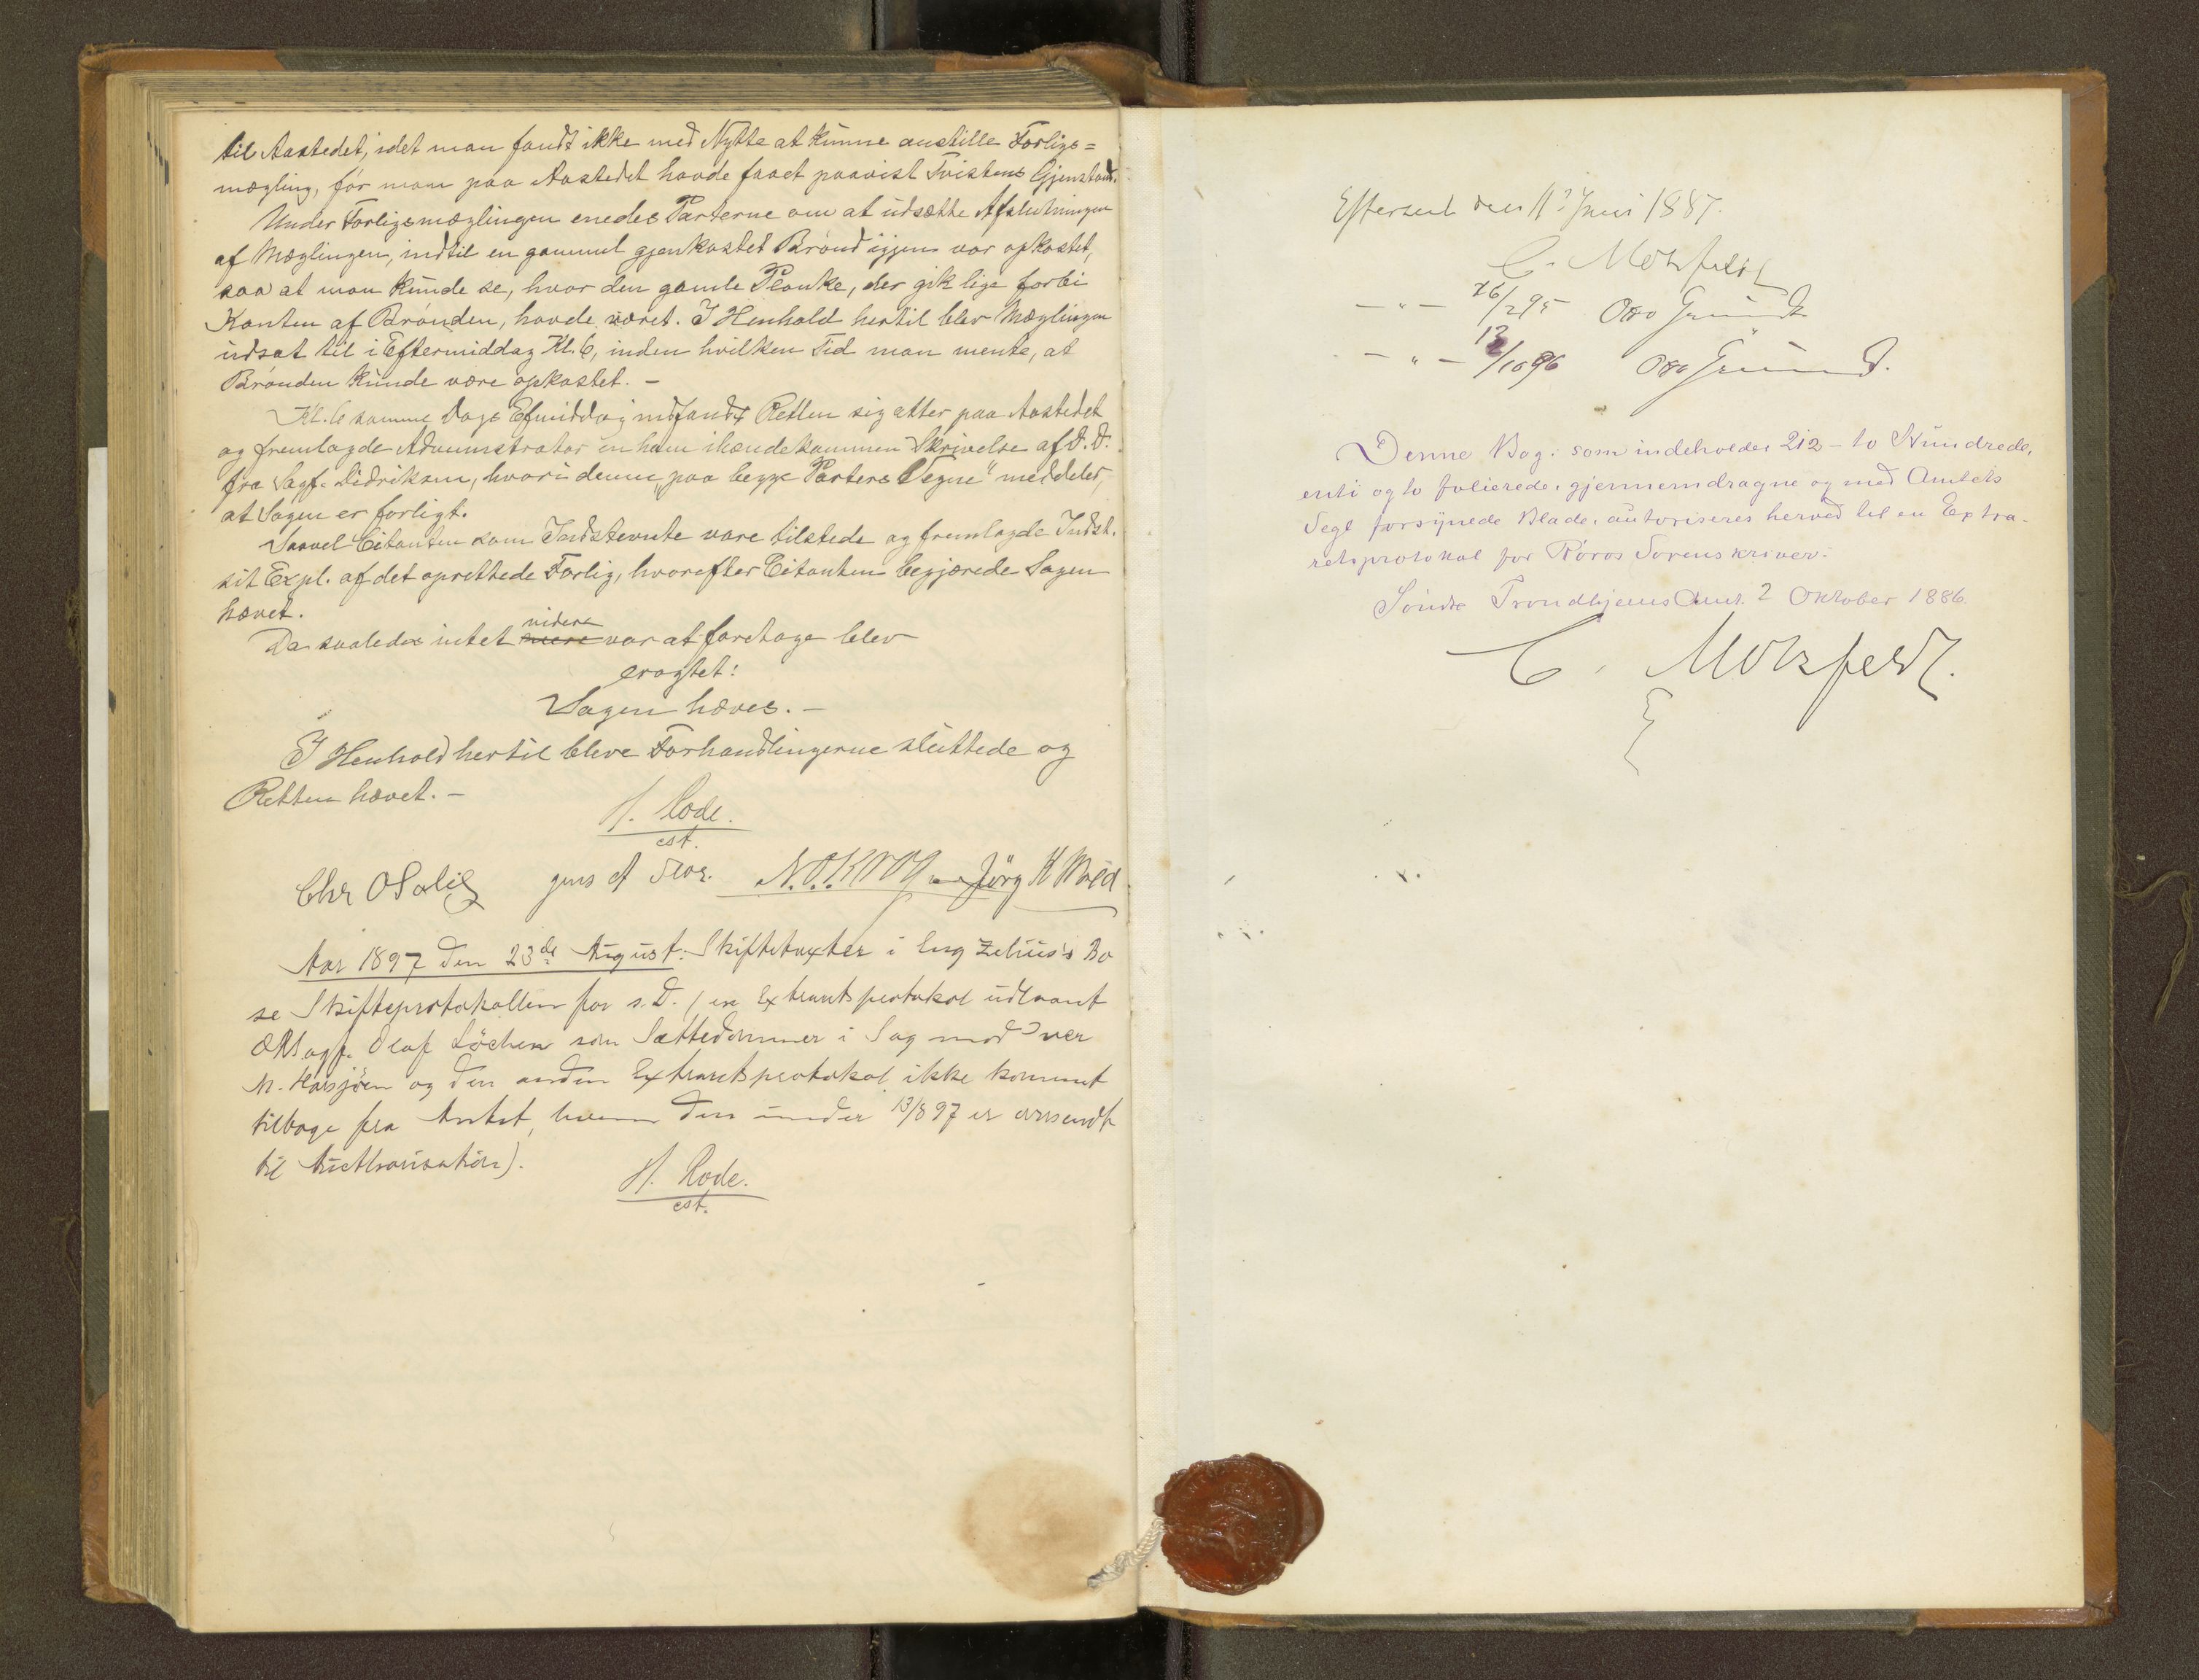 til Aastedet, idet man fandt ikke med Nytte at kunne anstille Forligs=
mægling, før man paa Aastedet havde faaet paavist Tvistens Gjenstand.
Under Forligsmæglingen enedes Parterne om at udsætte Afslutningen
af Mæglingen, indtil en gammel gjenkastet Brønd igjen var opkastet,
saa at man kunde se, hvor den gamle Planke, der gik lige forbi
Kanten af Brønden, havde været. I Henhold hertil blev Mæglingen
udsat til i Eftermiddag Kl. 6, inden hvilken Tid man mente, at
Brønden kunde være opkastet. –
Kl. 6 samme Dags Efmiddag indfandt Retten sig atter paa Aastedet
og fremlagde Administrator en ham ihændekommen Skrivelse af D. D.
fra Sagf. Didriksen, hvori denne „paa begge Parters Vegne" meddeler,
at Sagen er forligt.
Saavel Citanten som Indstevnte vare tilstede og fremlagde Indst.
sit Expl. af det oprettede Forlig, hvorefter Citanten begjærede Sagen
hævet.
Da saaledes intet mere videre var at foretage blev
eragtet:
Sagen hæves. –
I Henhold hertil bleve Forhandlingerne sluttede og
Retten hævet. –
H. Rode.
cst.
Chr O Galåen N. O. Krog Jörg K Wold
Aar 1897 den 23de August. Skiftetaxter i Eng Zelius's Bo
se Skifteprotokollen for s. D. (en Extraretsprotokol udlaant
Olaf Löchen som Sættedommer i Sag mod Iver
N. Harsjöen og den anden Extraretsprotokol ikke kommet
tilbage fra Amtet, hvem den under 13/8 97 er oversendt
til Aucthorisation).
H. Rode.
cst.
Efterseet den 11 Juni 1887.
C. Motzfeldt
– " – 26/2 95 Otto Grundt
– " – 13/10 96 Otto Grundt.
Denne Bog. som indeholder 212 – to Hundrede,
enti og to folierede. gjennemdragne og med Amtets
Segl forsynede Blade. autoriseres herved til en Extra-
retsprotokol for Røros Sorenskriveri.
Søndre Trondhjems Amt. 2 Oktober 1886.
C. Motzfeldt.